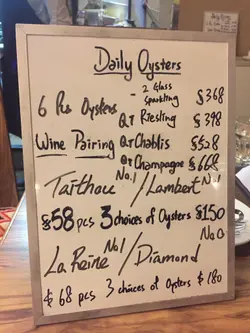 Daily Oysters
6 Pcs Oysters - 2 Glass Sparkling $368
or Riesling $398
Wine Pairing or Chablis $528
or Champagne $668
Tarthou No.1 / Lambert No
$58 pcs 3 choices of Oysters $150
La Reine No1 / Diamond No0
$68 pcs 3 choices of Oysters $180